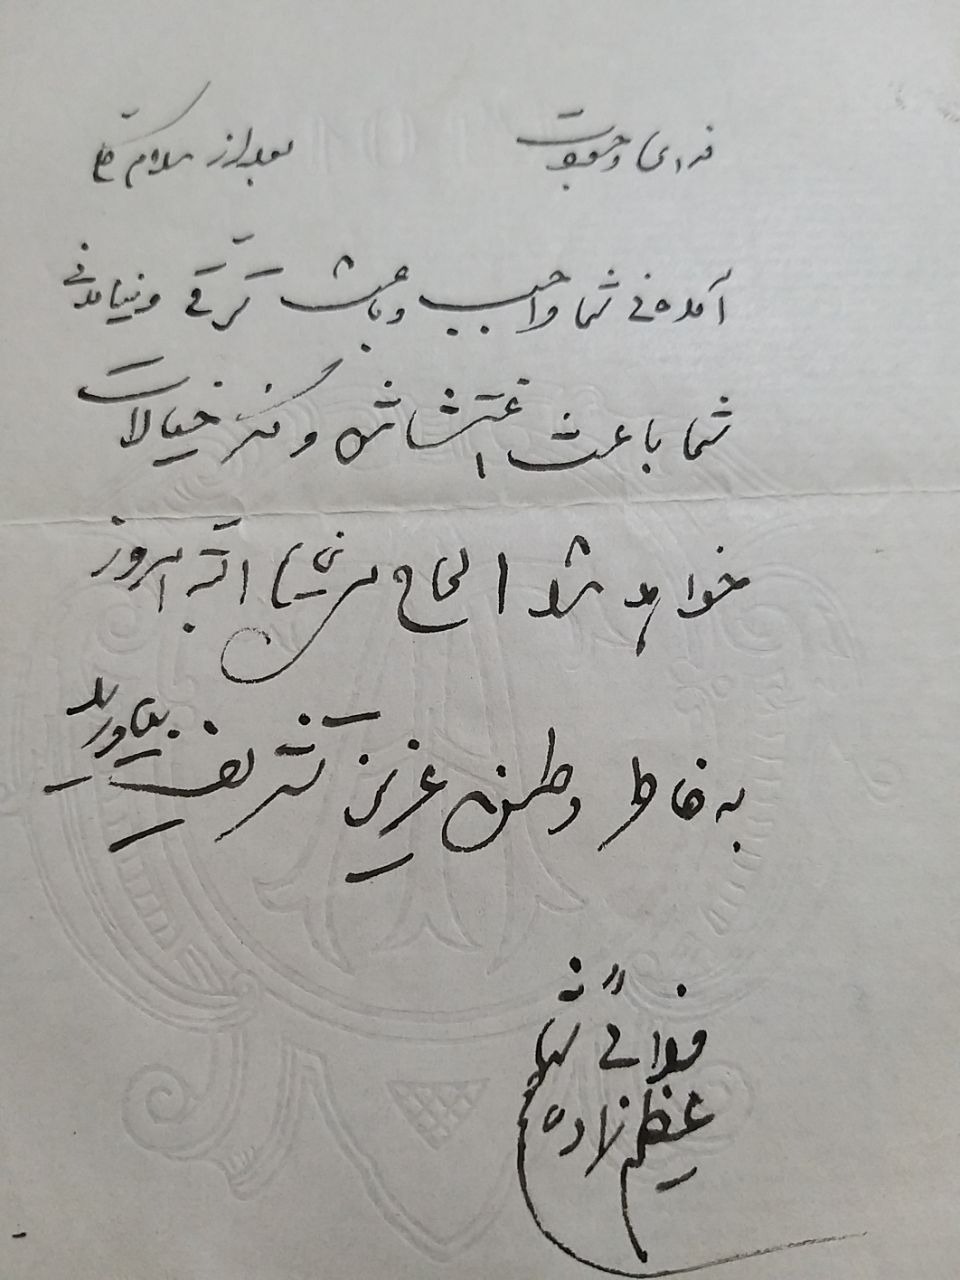 فدای وجودت بعد از سلام
آمدن شما واجب و باعث ترقی و نیامدن
شما باعث اغتشاش و خیالات
خواهد شد البته امروز
به خاطر وطن عزیز تشریف بیاورید
فدائی شما
عظیم زاده